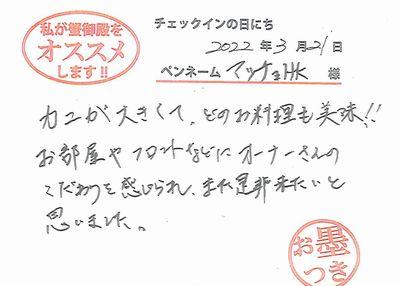 私が蟹御殿を
オススメ
します!!
チェックインの日にち
2022年3月21日
ペンネーム マッチョHK 様
カニが大きくて、どのお料理も美味!!
お部屋やフロントなどにオーナーさんの
こだわりを感じられ、また是非来たいと
思いました。
お墨
つき